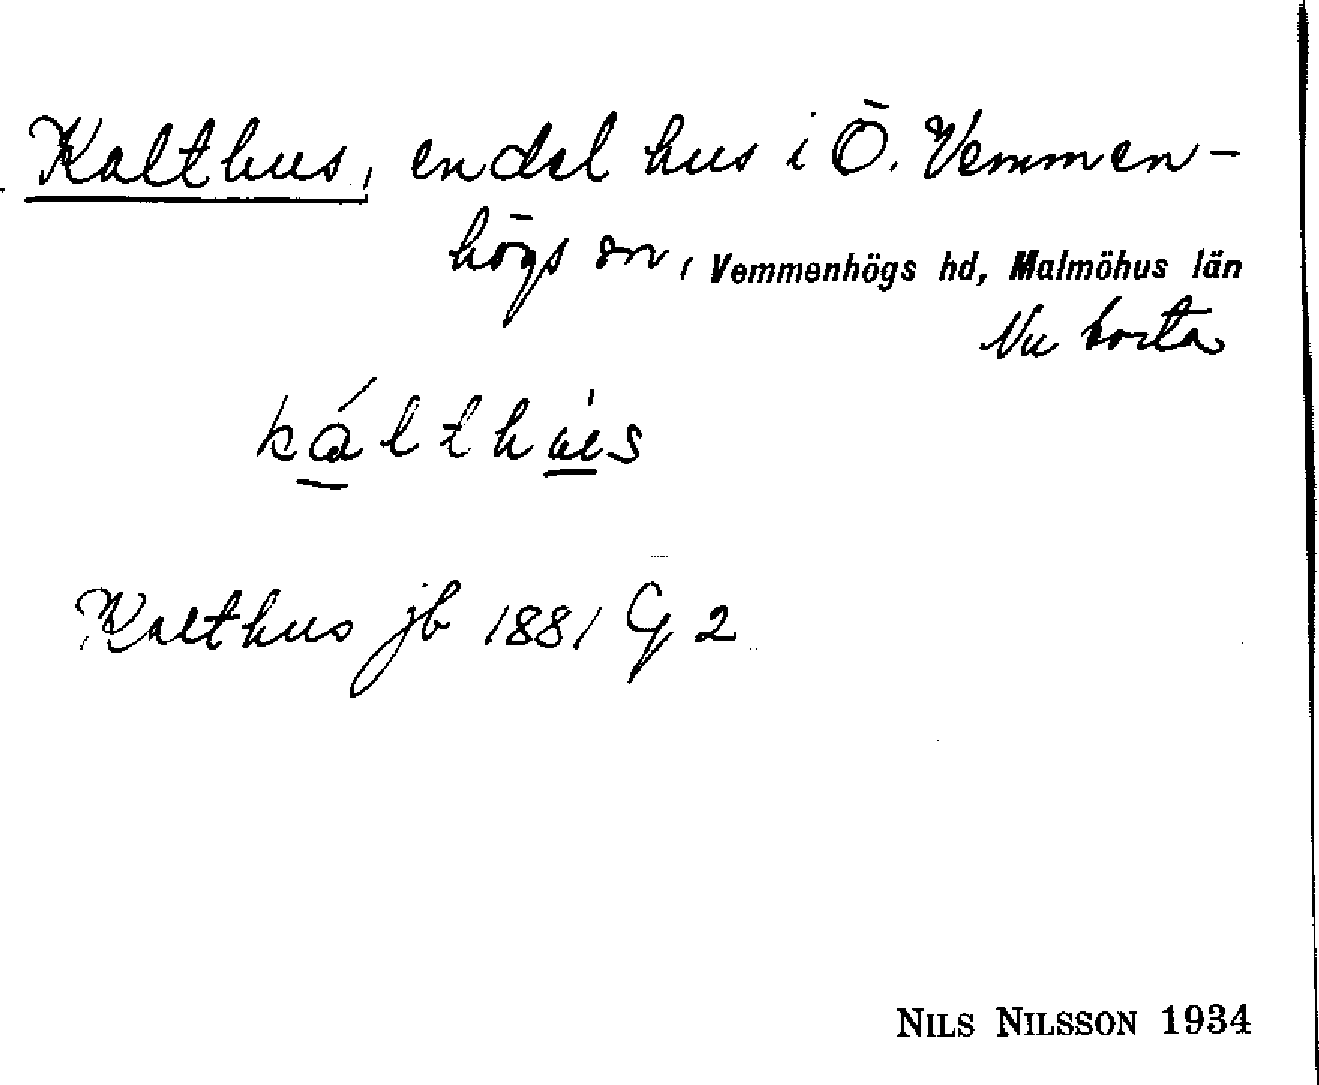 Kalthus, en del hus i Ö. Vemmen-
högs sn, Vemmenhögs hd, Malmöhus län
Nu borta
kálthùs
Kalthus jb 1881 G 2
NILS NILSSON 1934